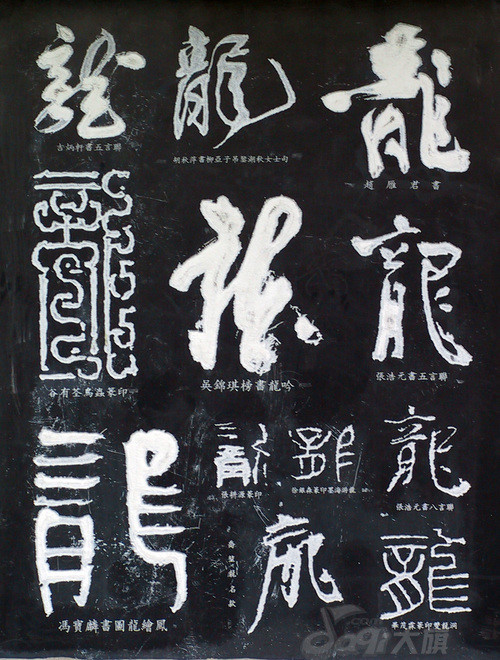 龍 龍 龍
吉炳軒書五言聯
胡秋萍書柳亞子吊鑒湖秋女士句
趙雁君書
龍 龍 龍
谷有荃鳥蟲篆印
吳錦琪榜書龍吟
張浩元書五言聯
龍 龍 龍 龍
張耕源篆印
徐銀森篆印墨海游龍
張浩元書八言聯
龍 龍
馮寶麟書圖龍繪鳳
龍名款
華茂霖篆印雙龍洞
.com
daqi大旗